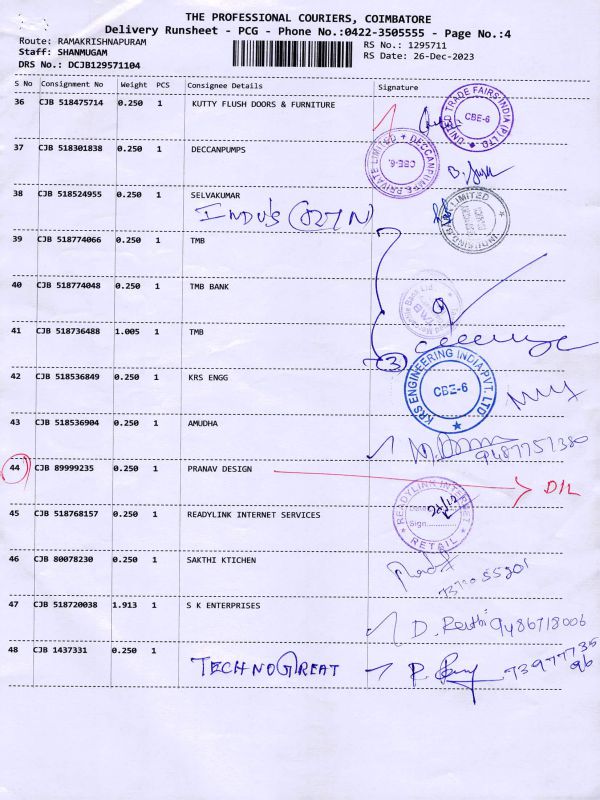 THE PROFESSIONAL COURIERS, COIMBATORE
Delivery Runsheet - PCG - Phone No.:0422-3505555 - Page No.:4
Route: RAMAKRISHNAPURAM RS No.: 1295711
Staff: SHANMUGAM RS Date: 26-Dec-2023
DRS No.: DCJB129571104
S No Consignment No Weight PCS Consignee Details Signature
36 CJB 518475714 0.250 1 KUTTY FLUSH DOORS & FURNITURE
UNITED TRADE FAIRS INDIA (P) LTD. CBE-6
37 CJB 518301838 0.250 1 DECCANPUMPS
DECCANPUMPS PRIVATE LIMITED CBE-6.
38 CJB 518524955 0.250 1 SELVAKUMAR
LIMITED
39 CJB 518774066 0.250 1 TMB
40 CJB 518774048 0.250 1 TMB BANK
41 CJB 518736488 1.005 1 TMB
3
42 CJB 518536849 0.250 1 KRS ENGG
KRS ENGINEERING INDIA PVT. LTD. CBE-6
43 CJB 518536904 0.250 1 AMUDHA
9487751380
44 CJB 89999235 0.250 1 PRANAV DESIGN D/L
45 CJB 518768157 0.250 1 READYLINK INTERNET SERVICES
READYLINK INTERNET Sign. RETAIL
46 CJB 80078230 0.250 1 SAKTHI KTICHEN
47 CJB 518720038 1.913 1 S K ENTERPRISES
D. Revthi 9486718006
48 CJB 1437331 0.250 1 TECHNOGREAT
7397773596